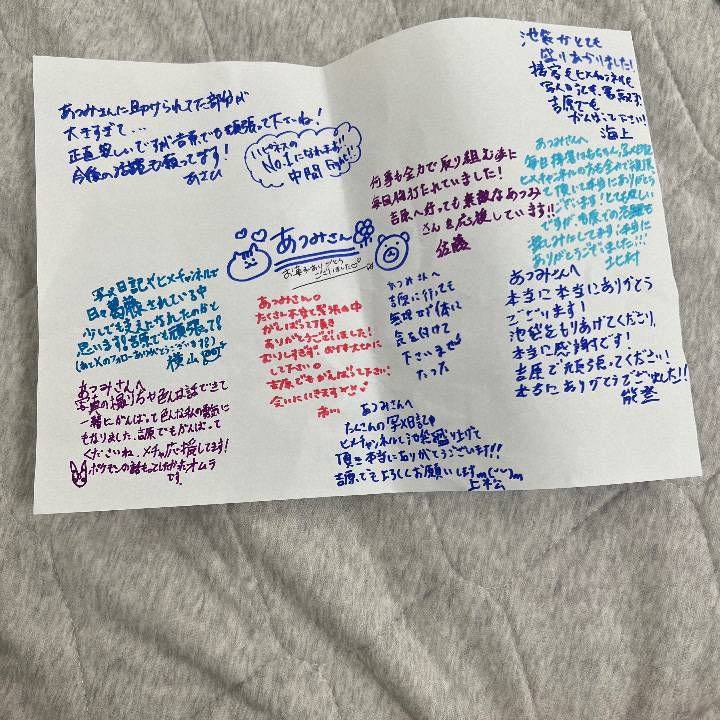 あつみさんに助けられてた部分が
大きすぎて...
正直寂しいですが吉原でも頑張って下さいね！
今後の活躍も願ってます！
あさひ
No.1になれます!!
中間 Fight!!
池袋がとても
盛りあがりました！
接客もヒメチャンネルも
写メ日記も
吉原でも
がんばって下さい！
海上
何事も全力で取り組む姿に
毎日胸打たれていました！
吉原へ行っても素敵なあつみ
さんを応援しています!!
佐藤
あつみさんへ
毎日接客はもちろん、写メ日記
ヒメチャンネルの方も全力で
して頂いて本当にありがとう
ございます！とても寂しい
ですが吉原での活躍も
楽しみにしてます！本当に
ありがとうございました!!!
北村
あつみさん
お菓子ありがとう
ございました
写メ日記やヒメチャンネルで
日々葛藤されている中
少しでも支えになれたのかと
思います!!吉原でも頑張って!!
(あとXのフォローありがとうございます!!)
横山
あつみさん
たくさん不安と緊張の中
がんばって頂き
ありがとうございました！
むりしすぎず、お体大切に
して下さい
吉原でもがんばって下さい！
会いにいきます
あつみさんへ
吉原に行っても
無理せず体に
気を付けて
下さいませ
たった
あつみさんへ
本当に本当にありがとう
ございます！
池袋をもりあげてくださり、
本当に感謝です！
吉原で頑張ってください！
本当にありがとうございました!!
能登
あつみさんへ
写真の撮り方や色んな話できて
一緒にがんばって色んな私の勇気に
もなりました、吉原でもがんばって
くださいね、メチャ応援してます！
ポケモンの話もってしたかったオムラ
です。
あつみさんへ
たくさんの写メ日記や
ヒメチャンネルで池袋盛り上げて
頂き本当にありがとうございます!!
吉原でもよろしくお願いしますm(__)m
上松